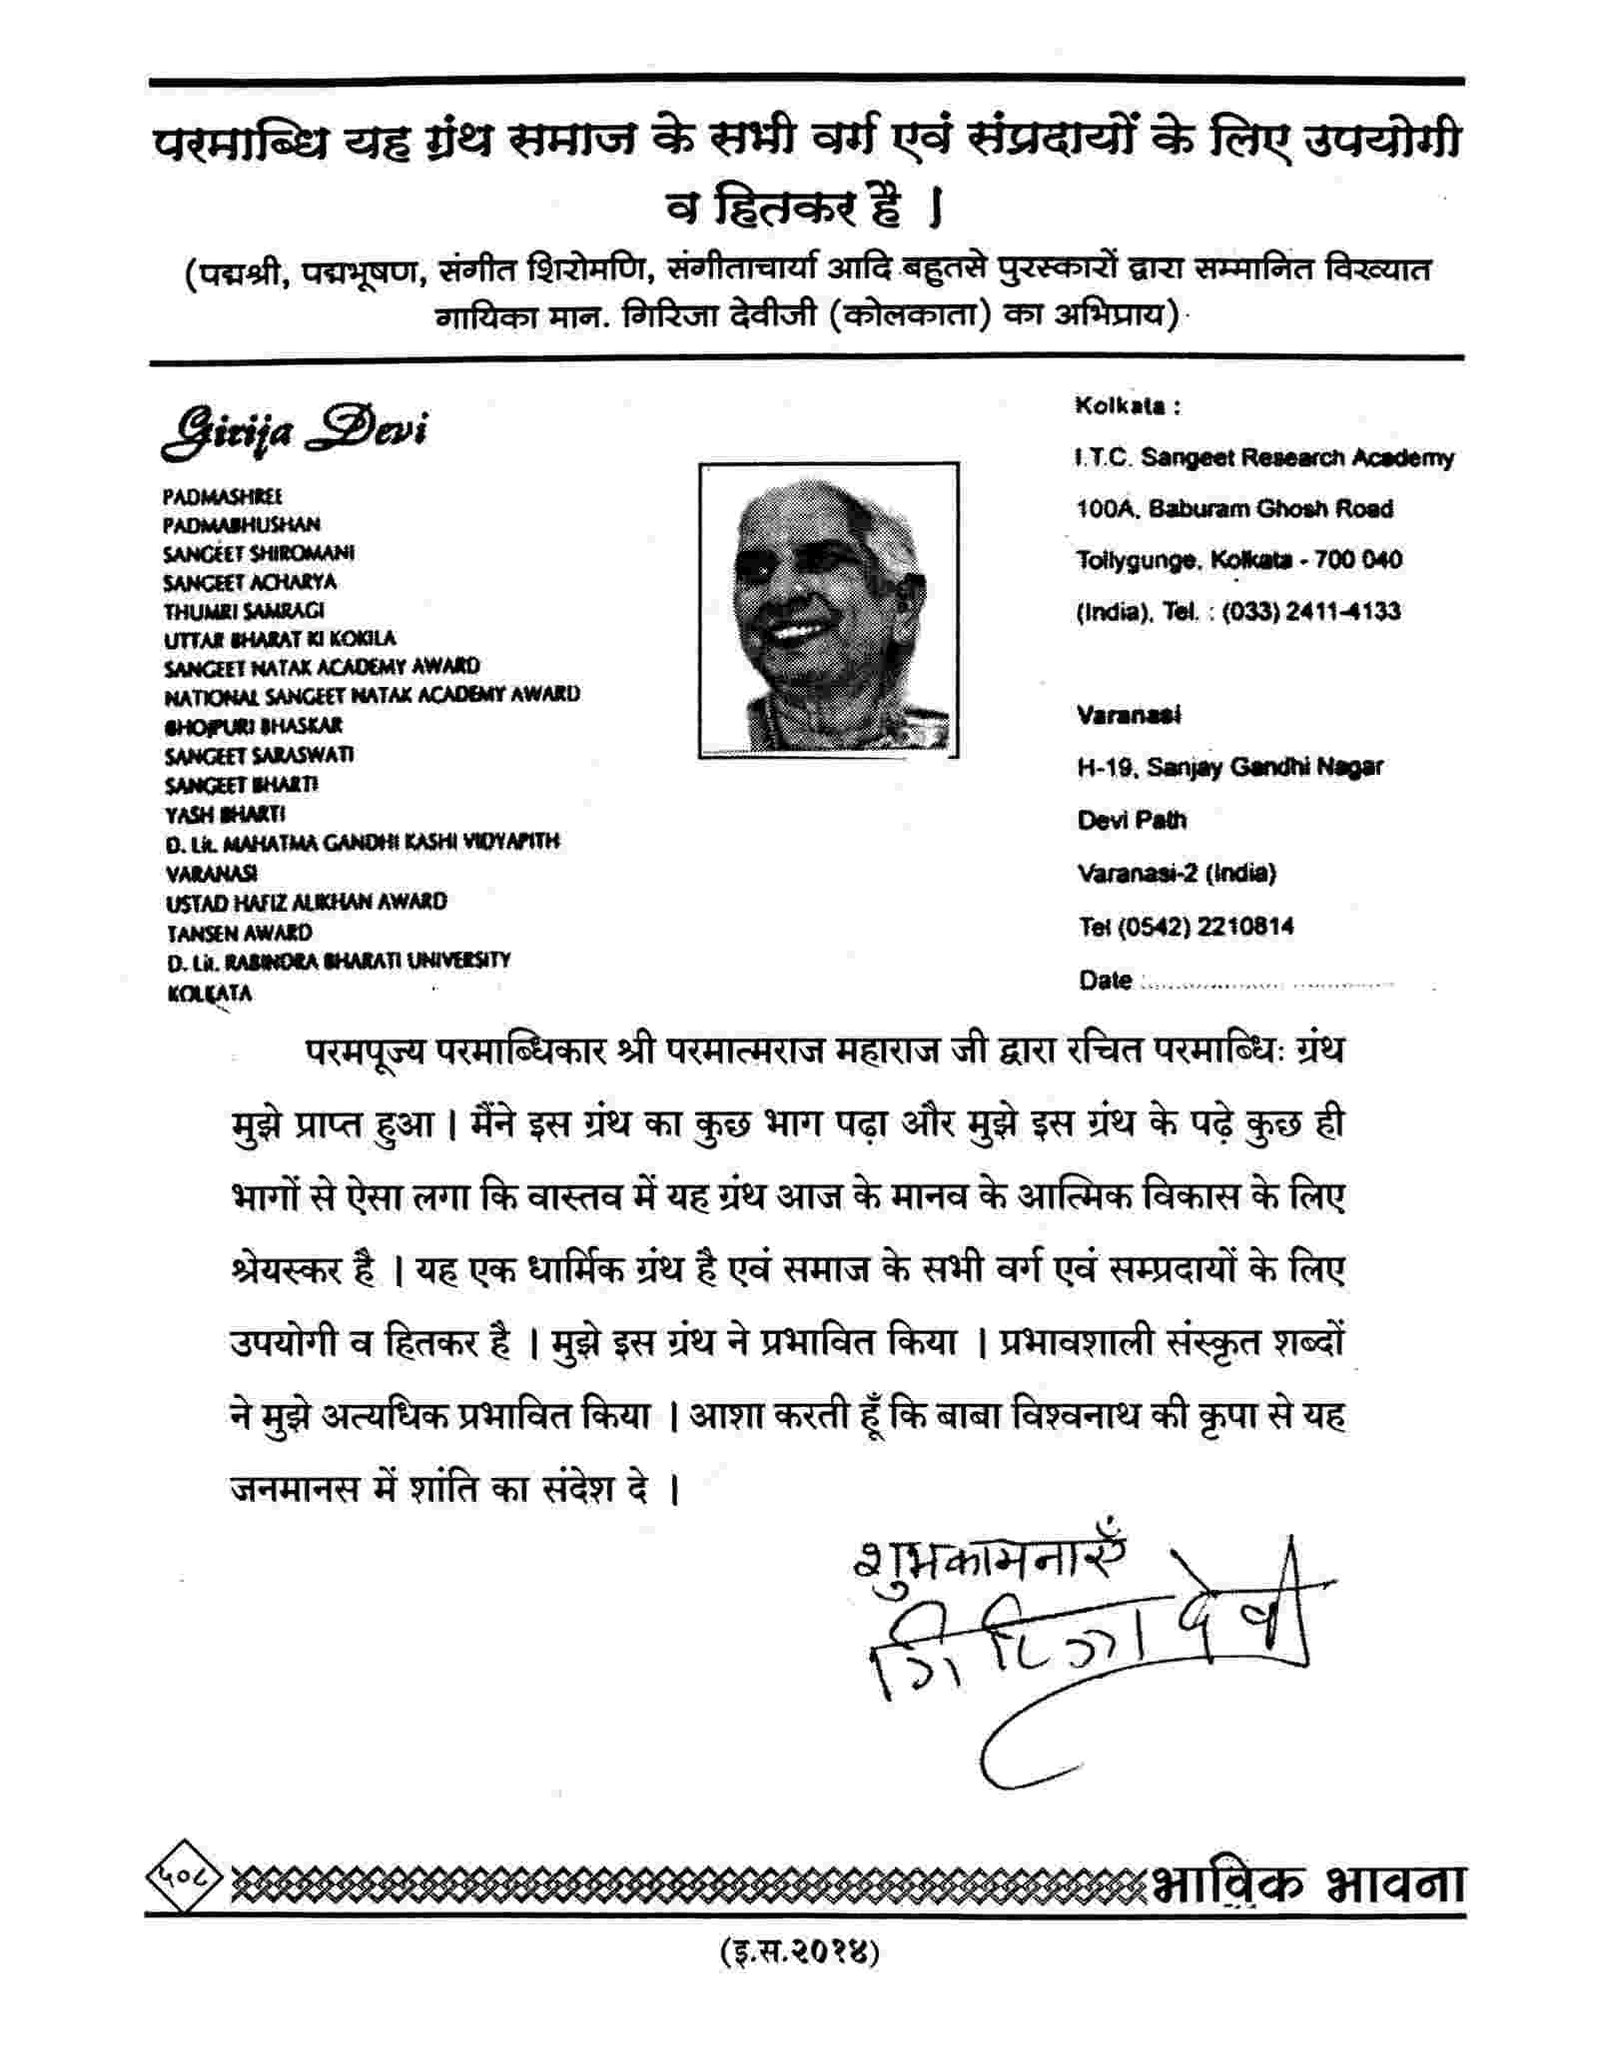 परमाब्धि यह ग्रंथ समाज के सभी वर्ग एवं संप्रदायों के लिए उपयोगी
व हितकर है ।
(पद्मश्री, पद्मभूषण, संगीत शिरोमणि, संगीताचार्या आदि बहुतसे पुरस्कारों द्वारा सम्मानित विख्यात
गायिका मान. गिरिजा देवीजी (कोलकाता) का अभिप्राय)
Girija Devi
PADMASHREE
PADMABHUSHAN
SANGEET SHIROMANI
SANGEET ACHARYA
THUMRI SAMRAGI
UTTAR BHARAT KI KOKILA
SANGEET NATAK ACADEMY AWARD
NATIONAL SANGEET NATAK ACADEMY AWARD
BHOJPURI BHASKAR
SANGEET SARASWATI
SANGEET BHARTI
YASH BHARTI
D. Lit. MAHATMA GANDHI KASHI VIDYAPITH
VARANASI
USTAD HAFIZ ALIKHAN AWARD
TANSEN AWARD
D. Lit. RABINDRA BHARATI UNIVERSITY
KOLKATA
Kolkata :
I.T.C. Sangeet Research Academy
100A, Baburam Ghosh Road
Tollygunge, Kolkata - 700 040
(India), Tel. : (033) 2411-4133
Varanasi
H-19, Sanjay Gandhi Nagar
Devi Path
Varanasi-2 (India)
Tel (0542) 2210814
Date
परमपूज्य परमाब्धिकार श्री परमात्मराज महाराज जी द्वारा रचित परमाब्धिः ग्रंथ
मुझे प्राप्त हुआ । मैंने इस ग्रंथ का कुछ भाग पढ़ा और मुझे इस ग्रंथ के पढ़े कुछ ही
भागों से ऐसा लगा कि वास्तव में यह ग्रंथ आज के मानव के आत्मिक विकास के लिए
श्रेयस्कर है । यह एक धार्मिक ग्रंथ है एवं समाज के सभी वर्ग एवं सम्प्रदायों के लिए
उपयोगी व हितकर है । मुझे इस ग्रंथ ने प्रभावित किया । प्रभावशाली संस्कृत शब्दों
ने मुझे अत्यधिक प्रभावित किया । आशा करती हूँ कि बाबा विश्वनाथ की कृपा से यह
जनमानस में शांति का संदेश दे ।
शुभकामनाएँ
गिरिजा देवी
५०८
भाविक भावना
(इ.स.२०१४)